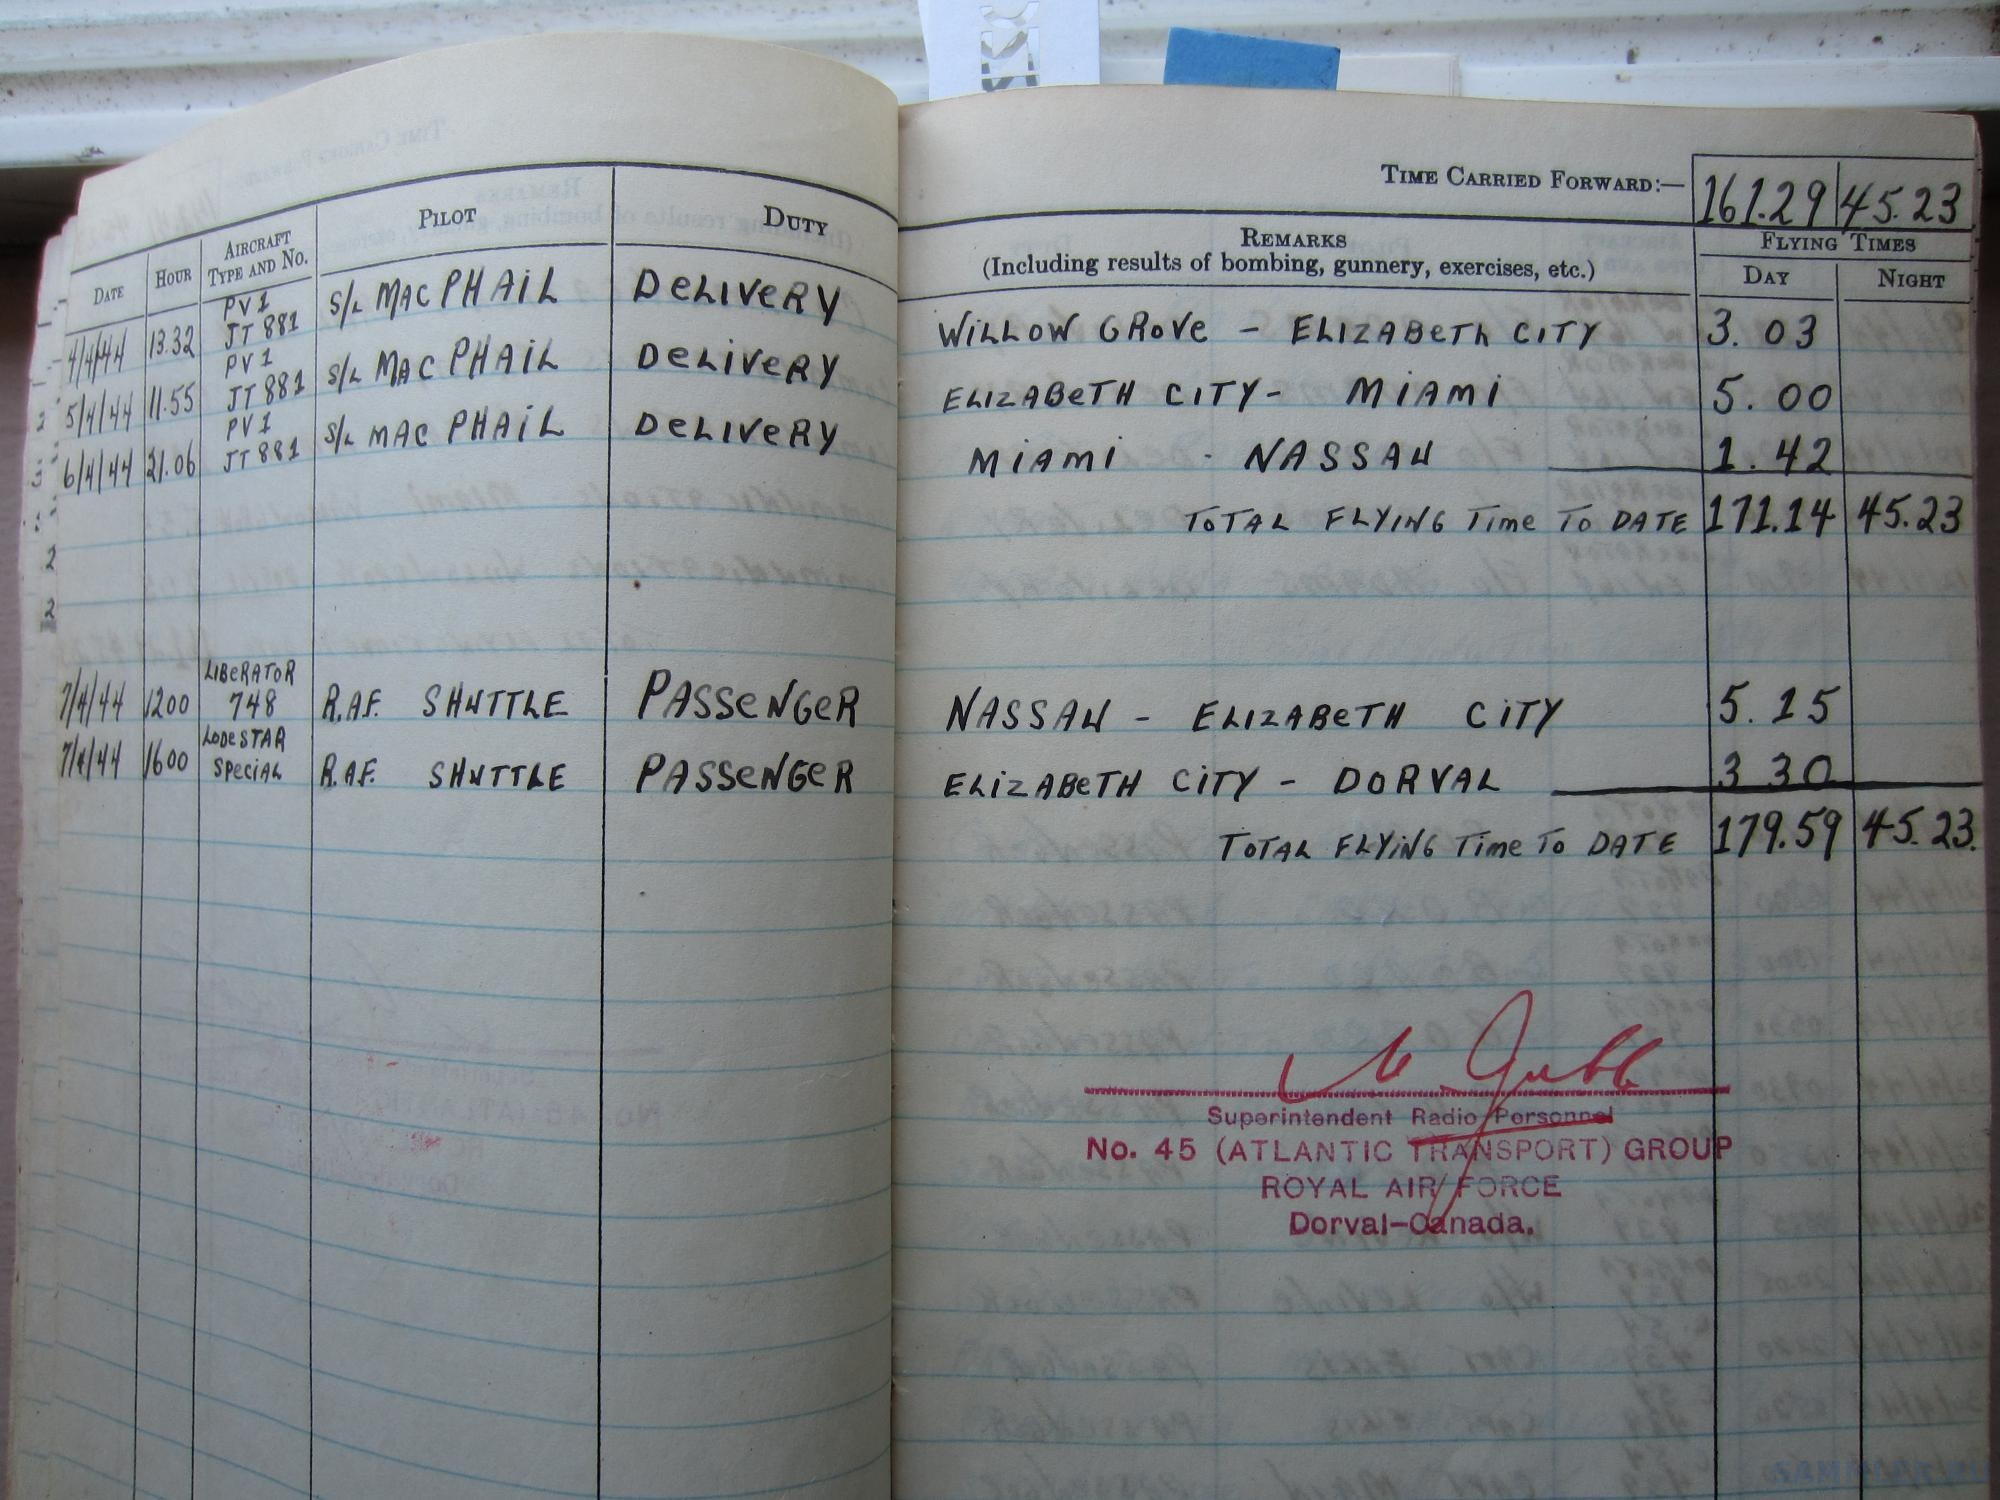 TIME CARRIED FORWARD:— 161.29 45.23
DATE HOUR AIRCRAFT TYPE AND NO. PILOT DUTY REMARKS (Including results of bombing, gunnery, exercises, etc.) FLYING TIMES DAY NIGHT
4/4/44 13.32 PV1 JT 881 S/L MAC PHAIL DELIVERY WILLOW GROVE - ELIZABETH CITY 3.03
5/4/44 11.55 PV1 JT 881 S/L MAC PHAIL DELIVERY ELIZABETH CITY - MIAMI 5.00
6/4/44 21.06 PV1 JT 881 S/L MAC PHAIL DELIVERY MIAMI - NASSAU 1.42
TOTAL FLYING TIME TO DATE 171.14 45.23
7/4/44 1200 LIBERATOR 748 R.A.F. SHUTTLE PASSENGER NASSAU - ELIZABETH CITY 5.15
7/4/44 1600 LODESTAR SPECIAL R.A.F. SHUTTLE PASSENGER ELIZABETH CITY - DORVAL 3 30
TOTAL FLYING TIME TO DATE 179.59 45.23.
Superintendent Radio Personnel
No. 45 (ATLANTIC TRANSPORT) GROUP
ROYAL AIR FORCE
Dorval-Canada.